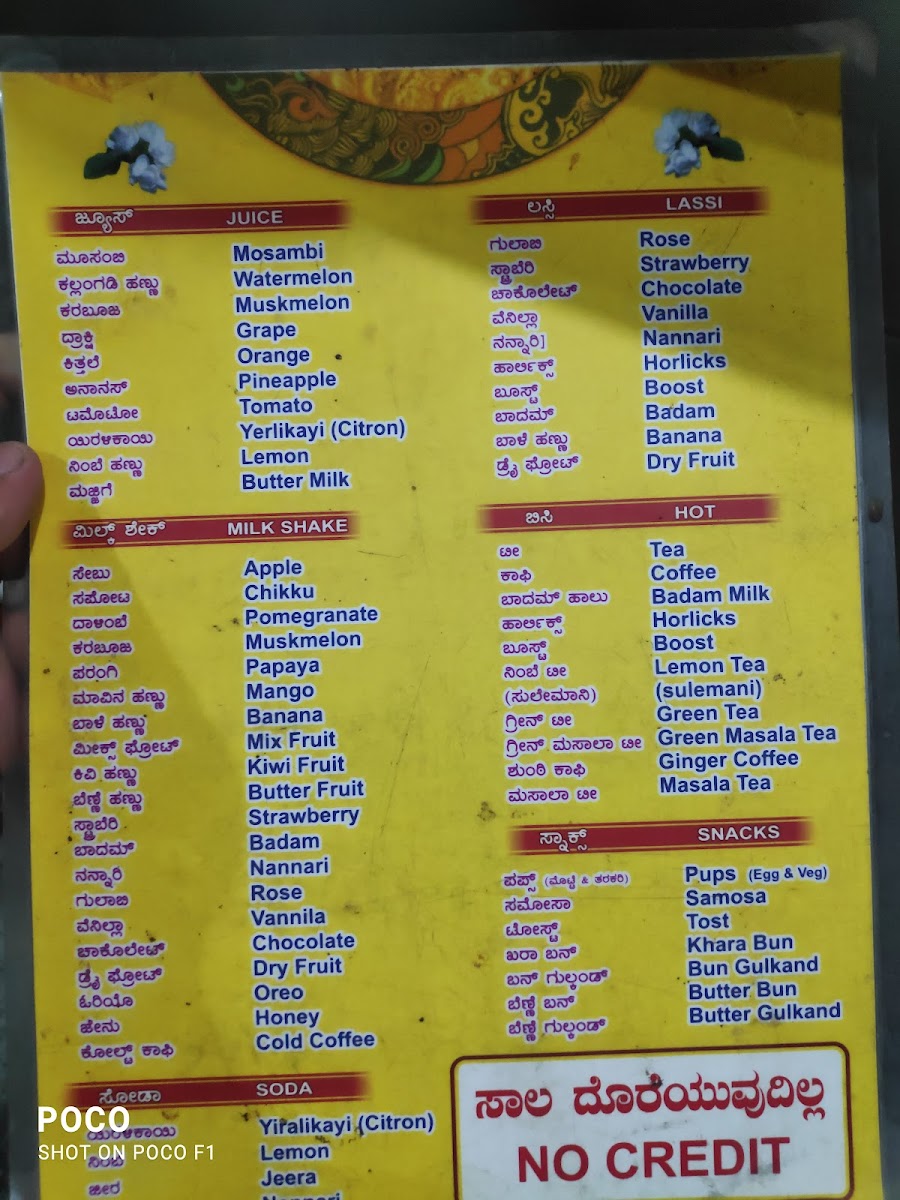 ಜ್ಯೂಸ್ JUICE
ಮೂಸಂಬಿ Mosambi
ಕಲ್ಲಂಗಡಿ ಹಣ್ಣು Watermelon
ಕರಬೂಜ Muskmelon
ದ್ರಾಕ್ಷಿ Grape
ಕಿತ್ತಲೆ Orange
ಅನಾನಸ್ Pineapple
ಟಮೋಟೋ Tomato
ಯಿರಳಿಕಾಯಿ Yerlikayi (Citron)
ನಿಂಬೆ ಹಣ್ಣು Lemon
ಮಜ್ಜಿಗೆ Butter Milk
ಮಿಲ್ಕ್ ಶೇಕ್ MILK SHAKE
ಸೇಬು Apple
ಸಪೋಟ Chikku
ದಾಳಿಂಬೆ Pomegranate
ಕರಬೂಜ Muskmelon
ಪರಂಗಿ Papaya
ಮಾವಿನ ಹಣ್ಣು Mango
ಬಾಳೆ ಹಣ್ಣು Banana
ಮೀಕ್ಸ್ ಫ್ರೋಟ್ Mix Fruit
ಕಿವಿ ಹಣ್ಣು Kiwi Fruit
ಬೆಣ್ಣೆ ಹಣ್ಣು Butter Fruit
ಸ್ಟ್ರಾಬೆರಿ Strawberry
ಬಾದಮ್ Badam
ನನ್ನಾರಿ Nannari
ಗುಲಾಬಿ Rose
ವೆನಿಲ್ಲಾ Vannila
ಚಾಕೊಲೇಟ್ Chocolate
ಡ್ರೈ ಫ್ರೋಟ್ Dry Fruit
ಓರಿಯೊ Oreo
ಹೇನು Honey
ಕೋಲ್ಟ್ ಕಾಫಿ Cold Coffee
ಸೋಡಾ SODA
ಯಿರಳಿಕಾಯಿ Yiralikayi (Citron)
ನಿಂಬೆ Lemon
ಜೀರ Jeera
Nannari
ಲಸ್ಸಿ LASSI
ಗುಲಾಬಿ Rose
ಸ್ಟ್ರಾಬೆರಿ Strawberry
ಚಾಕೊಲೇಟ್ Chocolate
ವೆನಿಲ್ಲಾ Vanilla
ನನ್ನಾರಿ] Nannari
ಹಾರ್ಲಿಕ್ಸ್ Horlicks
ಬೂಸ್ಟ್ Boost
ಬಾದಮ್ Badam
ಬಾಳೆ ಹಣ್ಣು Banana
ಡ್ರೈ ಫ್ರೋಟ್ Dry Fruit
ಬಿಸಿ HOT
ಟೀ Tea
ಕಾಫಿ Coffee
ಬಾದಮ್ ಹಾಲು Badam Milk
ಹಾರ್ಲಿಕ್ಸ್ Horlicks
ಬೂಸ್ಟ್ Boost
ನಿಂಬೆ ಟೀ Lemon Tea
(ಸುಲೇಮಾನಿ) (sulemani)
ಗ್ರೀನ್ ಟೀ Green Tea
ಗ್ರೀನ್ ಮಸಾಲಾ ಟೀ Green Masala Tea
ಶುಂಠಿ ಕಾಫಿ Ginger Coffee
ಮಸಾಲಾ ಟೀ Masala Tea
ಸ್ನಾಕ್ಸ್ SNACKS
ಪಪ್ಸ್ (ಮೊಟ್ಟೆ & ತರಕರಿ) Pups (Egg & Veg)
ಸಮೋಸಾ Samosa
ಟೋಸ್ಟ್ Tost
ಖರಾ ಬನ್ Khara Bun
ಬನ್ ಗುಲ್ಕಂಡ್ Bun Gulkand
ಬೆಣ್ಣೆ ಬನ್ Butter Bun
ಬೆಣ್ಣೆ ಗುಲ್ಕಂಡ್ Butter Gulkand
ಸಾಲ ದೊರೆಯುವುದಿಲ್ಲ
NO CREDIT
POCO
SHOT ON POCO F1